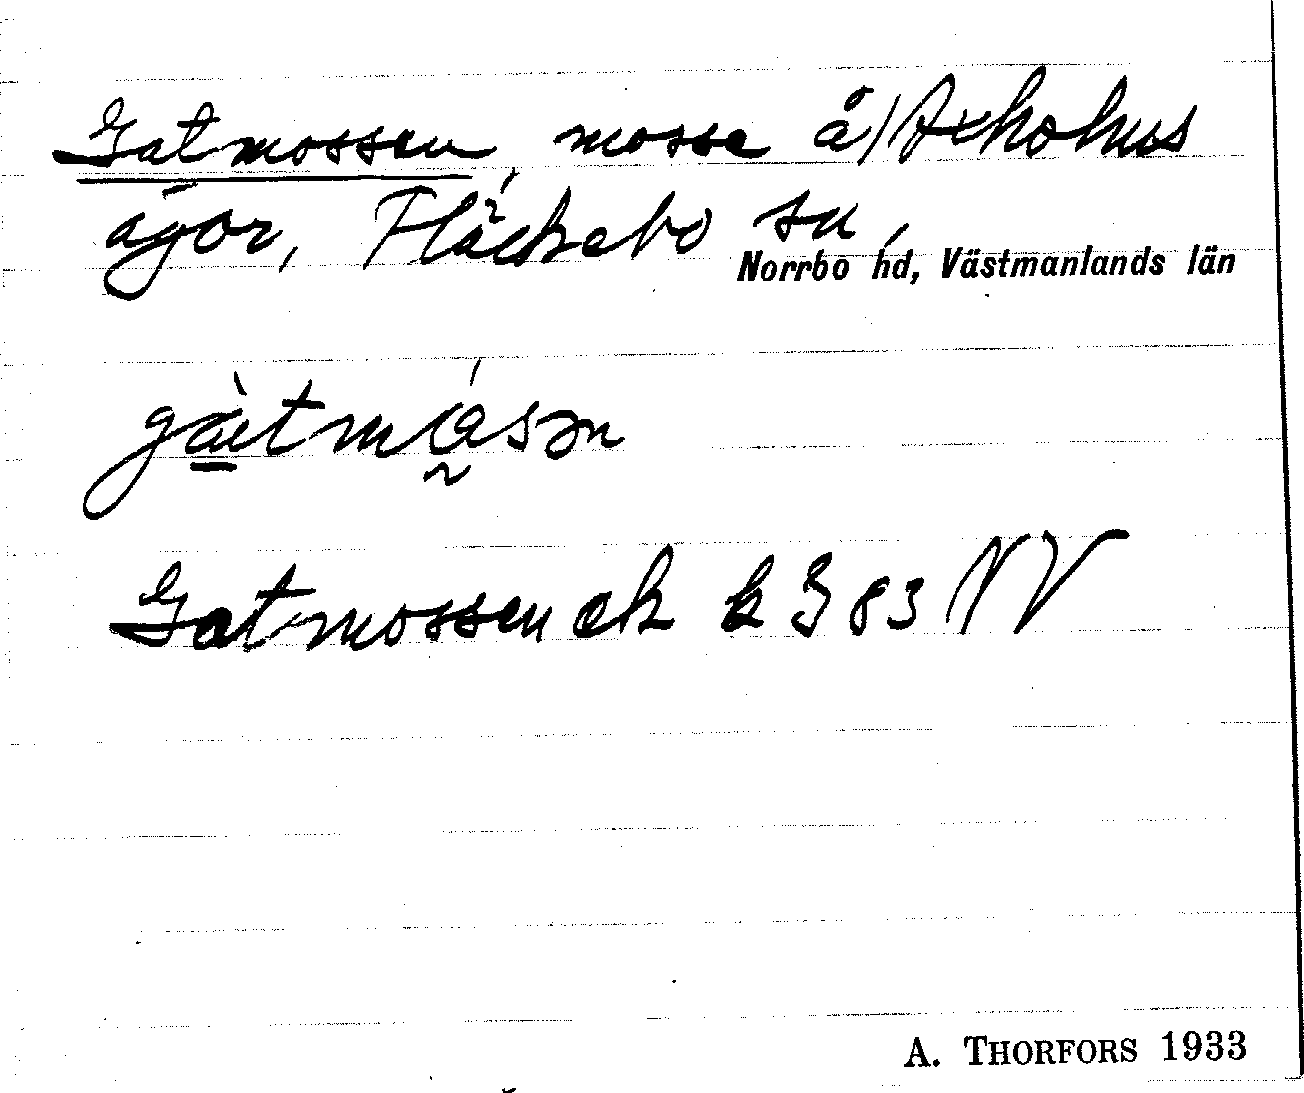 Gatmossen, mosse å Axholms
ägor, Fläckebo sn,
Norrbo hd, Västmanlands län
gàtmåsən
Gatmossen ek k 83 NV
A. THORFORS 1933